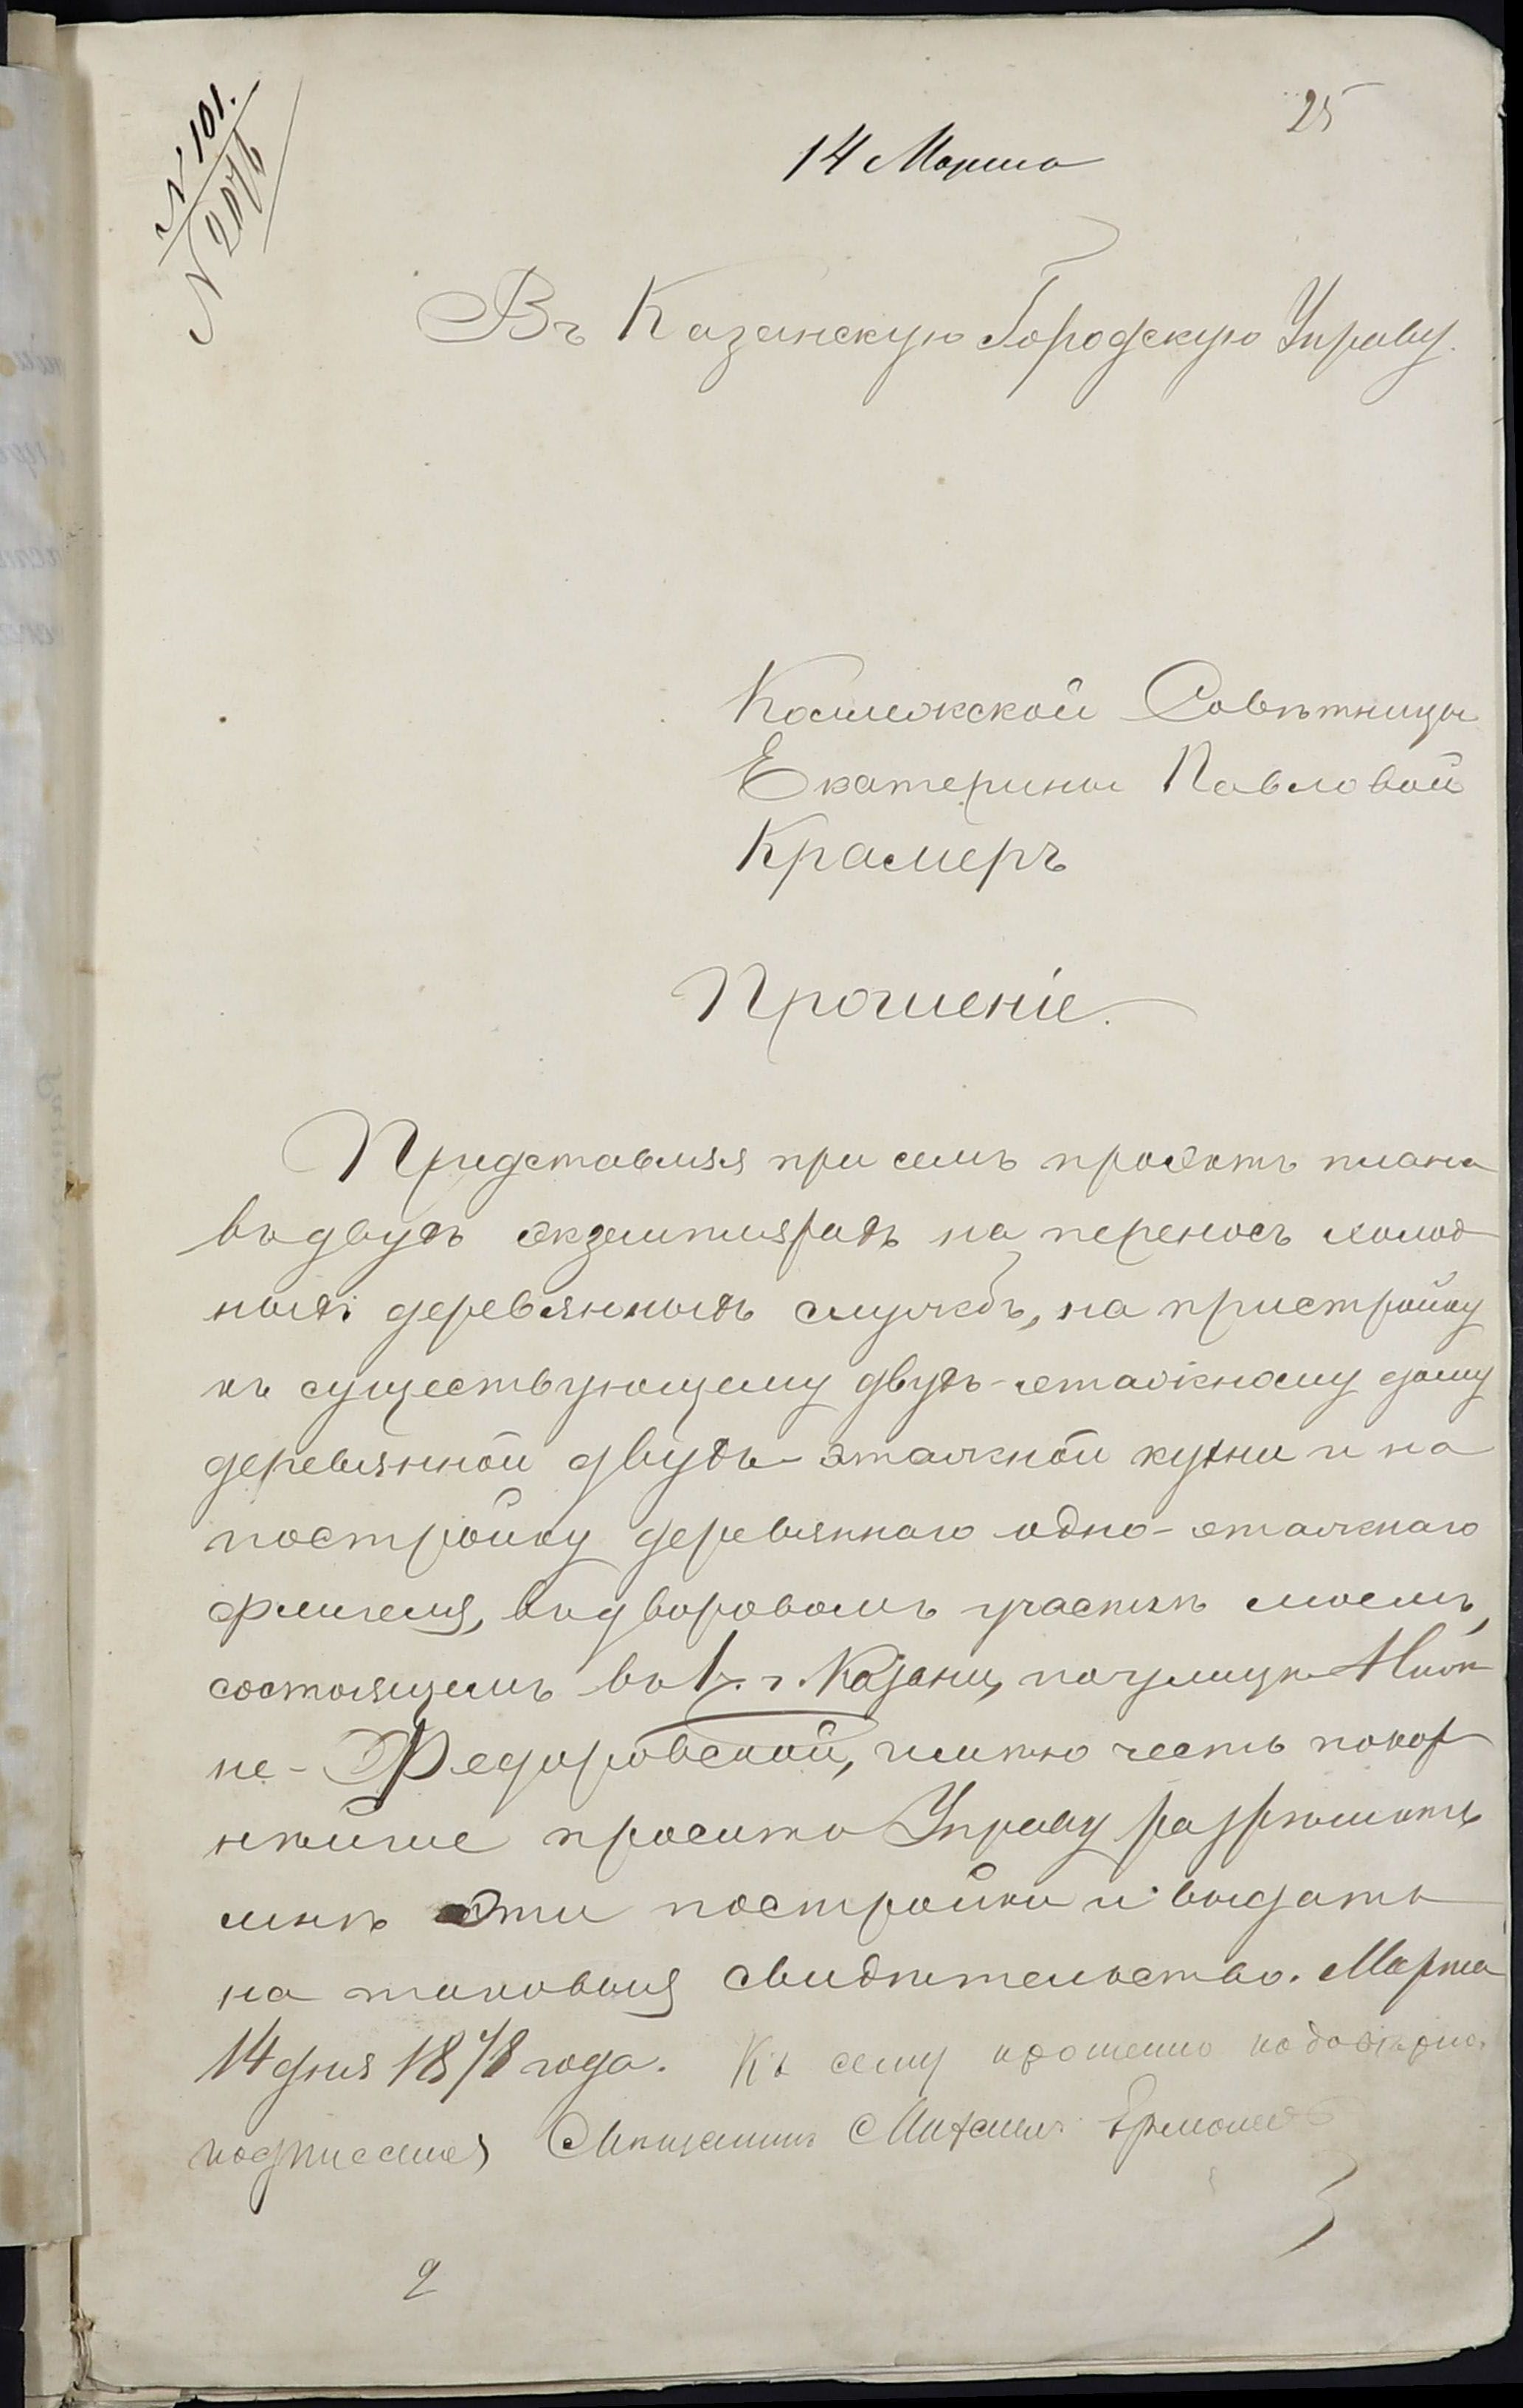 25
N 101.
N 2076
14 Марта
Въ Казанскую Городскую Управу.
Коллежской Совѣтницы
Екатерины Павловой
Крамеръ
Прошеніе.
Представляя при семъ проэктъ плана
въ двухъ экземплярахъ на переносъ холод
ныхъ деревянныхъ службъ, на пристройку
къ существующему двухъ-этажному дому
деревянной двухъ-этажной кухни и на
постройку деревяннаго одно-этажнаго
флигеля, въ дворовомъ участкѣ моемъ,
состоящемъ въ 1 ч. г. Казани, по улицѣ Ниж
не-Федоровской, имѣю честь покор
нѣйше просить Управу разрѣшить
мнѣ эти постройки и выдать
на таковыя свидѣтельство. Марта
14 дня 1878 года. Къ сему прошенію по довѣрію
подписался Мѣщанинъ Михаилъ Ермолаевъ
2